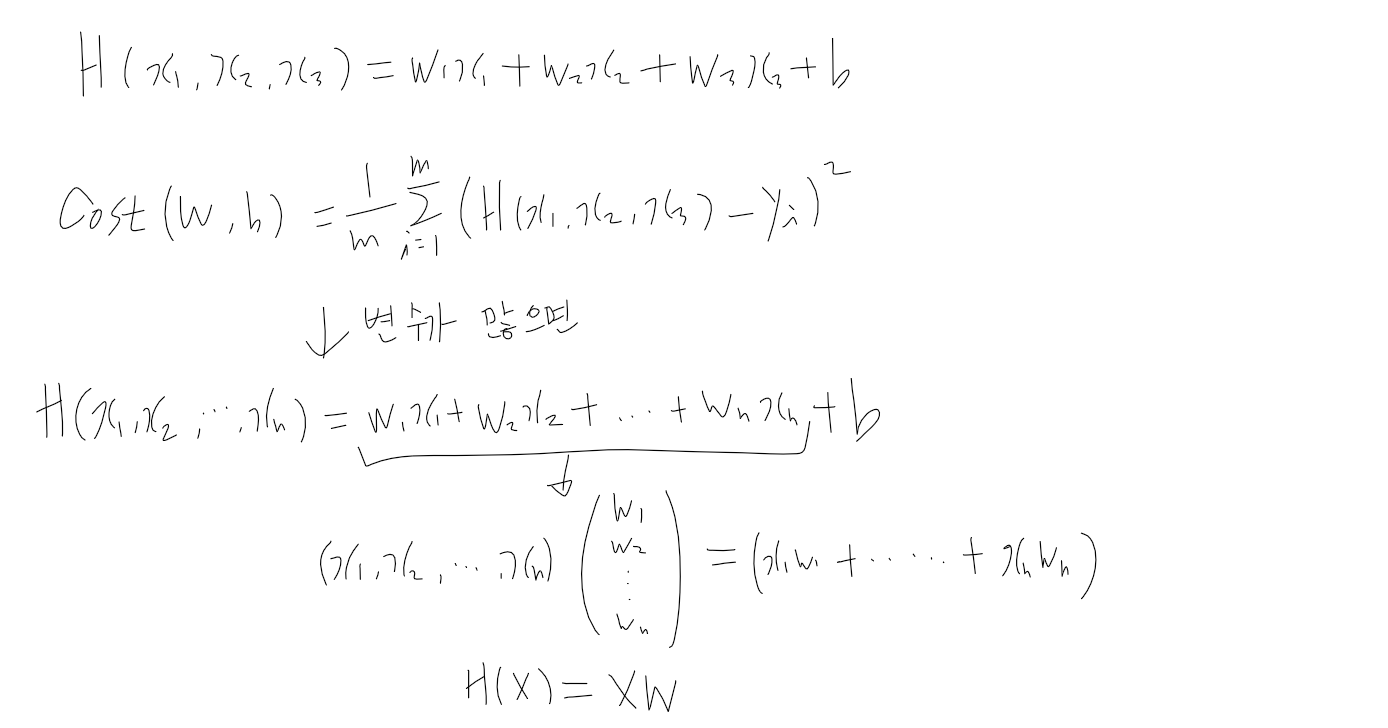 H(x₁, x₂, x₃) = w₁x₁ + w₂x₂ + w₃x₃ + b
Cost(W, b) = 1/m Σ_{i=1}^{m} (H(x₁, x₂, x₃) - y_i)²
↓ 변수가 많으면
H(x₁, x₂, ..., x_n) = w₁x₁ + w₂x₂ + ... + w_n x_n + b
(x₁, x₂, ..., x_n) (w₁ w₂ ⋮ w_n) = (x₁w₁ + ...... + x_n w_n)
H(X) = XW